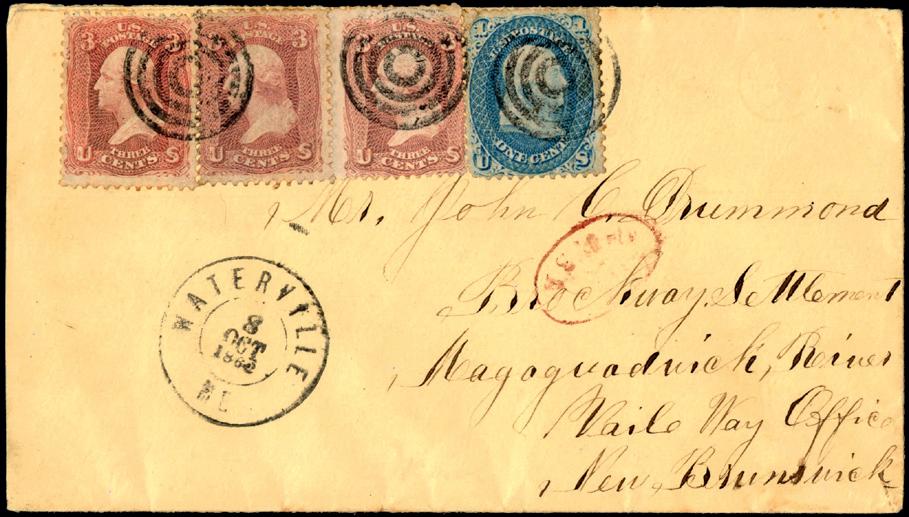 3 U.S. 3
POSTAGE
U THREE S
CENTS
3 U.S. 3
POSTAGE
U THREE S
CENTS
U.S.
POSTAGE
U THREE S
CENTS
1 U.S. POSTAGE 1
U ONE CENT S
Mr. John C. Drummond
Brockway Settlement
Magaguadwick, River
Vaile Way Office
New Brunswick
WATERVILLE
8
OCT
186
ME